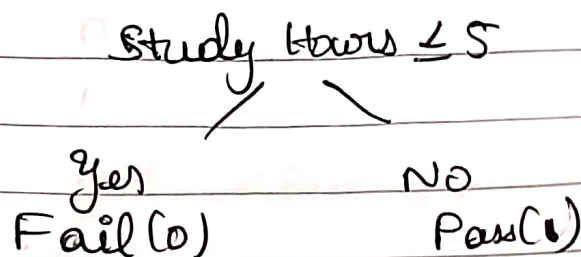 Study Hours ≤ 5
Yes NO
Fail (0) Pass(1)